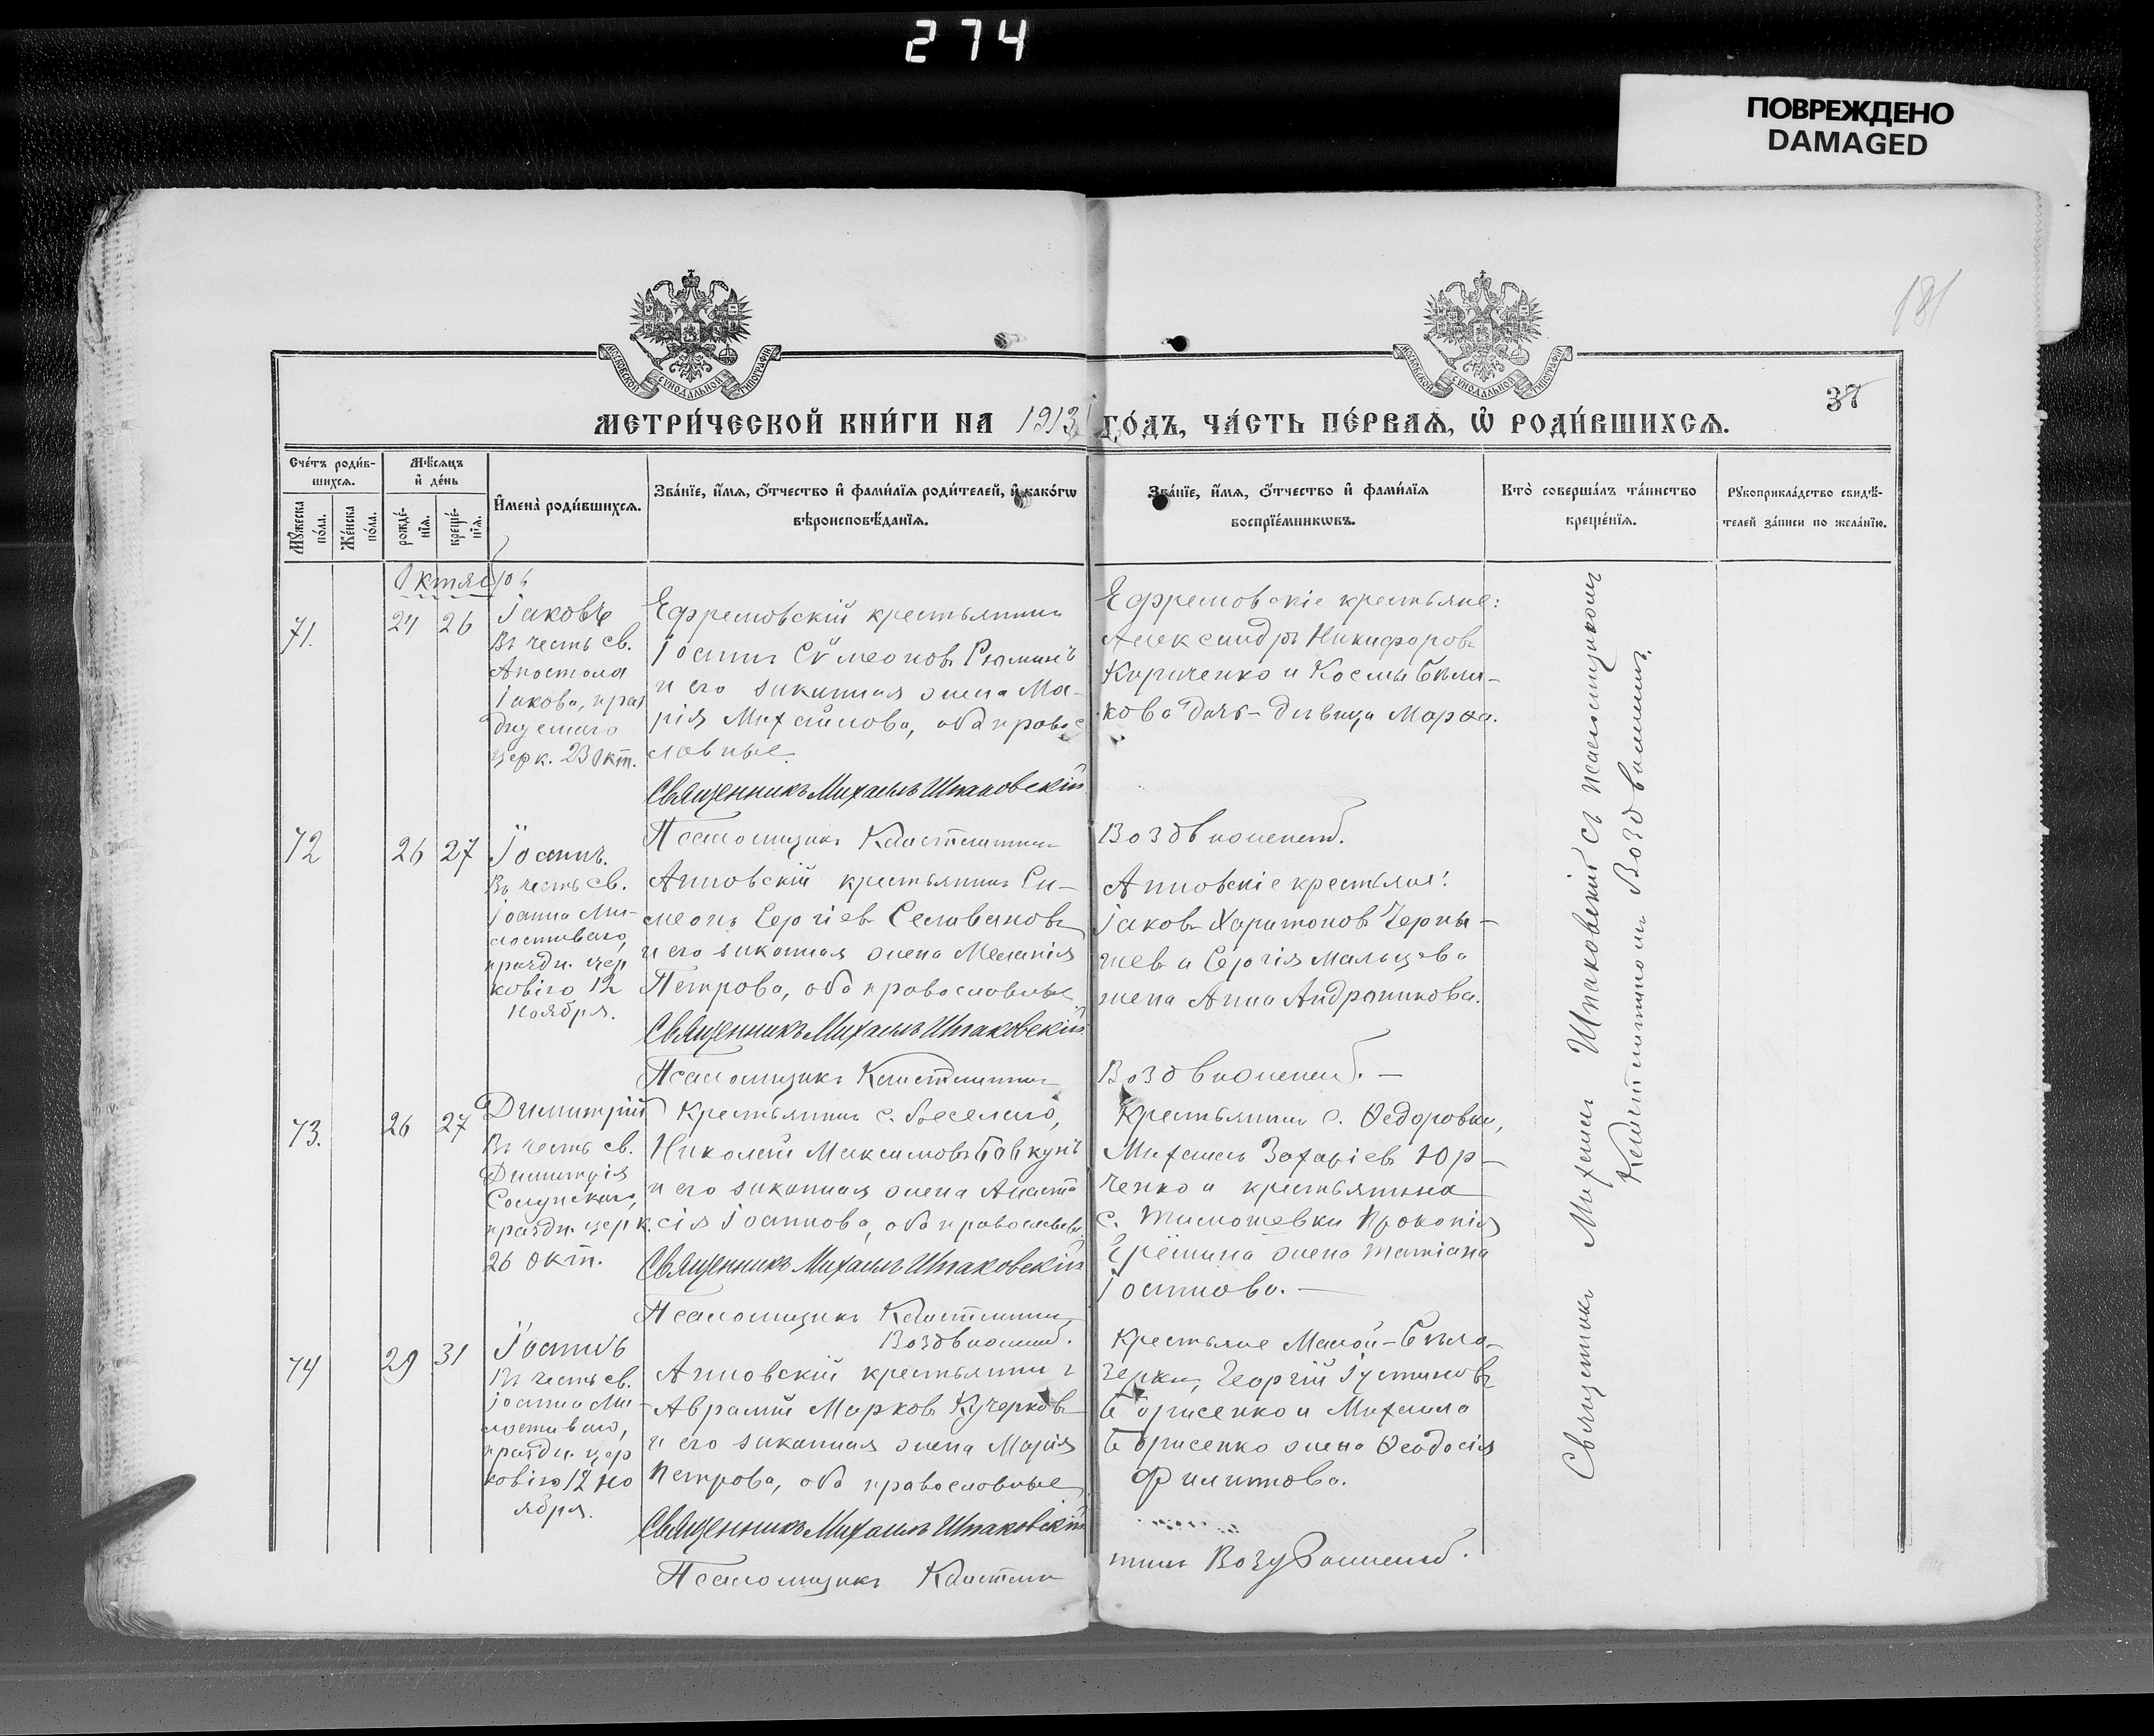 274
ПОВРЕЖДЕНО
DAMAGED
181
37
МОСКОВСКОЙ СѴНОДАЛЬНОЙ ТИПОГРАФІИ
МОСКОВСКОЙ СѴНОДАЛЬНОЙ ТИПОГРАФІИ
МЕТРИ́ЧЕСКОЙ КНИ́ГИ НА 1913 ГО́ДЪ, ЧА́СТЬ ПЕ́РВАѦ, Ѡ҆ РОДИ́ВШИХСѦ.
Счéтъ роди́в-
шихсѧ.
Мꙋ́жеска по́ла.
Жéнска по́ла.
Мѣ́сѧцъ
и҆ дéнь
рождé-
нїѧ.
крещé-
нїѧ.
И҆мена̀ роди́вшихсѧ.
Зва́нїе, и҆́мѧ, ѻ҆́тчество и҆ фами́лїѧ роди́телей, и҆ како́гѡ
вѣроисповѣ́данїѧ.
Зва́нїе, и҆́мѧ, ѻ҆́тчество и҆ фами́лїѧ
воспрїéмникѡвъ.
Кто̀ соверша́лъ та́инство
крещéнїѧ.
Рꙋкоприкла́дство свидѣ́-
телей за́писи по жела́нїю.
Октябрь
71.
24 26
Іаковъ
Въ честь св.
Апостола
Іакова, праз
днуемаго
церк. 23 Окт.
Ефремовскій крестьянинъ
Іоаннъ Сѵмеоновъ Рюминъ
и его законная жена Ма-
рія Михайлова, оба право
славные.
Священникъ Михаилъ Шпаковскій
Псаломщикъ Константинъ
Ефремовскіе крестьяне:
Александръ Никифоровъ
Кириченко и Космы Бѣли-
кова дочь-дѣвица Марѳа.
Воздвиженскій.
72
26 27
Іоаннъ.
Въ честь св.
Іоанна Ми-
лостиваго,
праздн. цер
ковію 12
Ноября.
Анновскій крестьянинъ Си-
меонъ Сергіевъ Селивановъ
и его законная жена Меланія
Петрова, оба православные
Священникъ Михаилъ Шпаковскій
Псаломщикъ Константинъ
Анновскіе крестьяне:
Іаковъ Харитоновъ Черны-
шевъ и Сергія Мальцева
жена Анна Андроникова.
Воздвиженскій. —
73.
26 27
Димитрій
Въ честь св.
Димитрія
Солунскаго,
праздн. церк.
26 окт.
Крестьянинъ с. Веселаго,
Николай Максимовъ Бовкунъ
и его законная жена Анаста
сія Іоаннова, оба православн.
Священникъ Михаилъ Шпаковскій
Псаломщикъ Константинъ
Воздвиженскій.
Крестьянинъ с. Ѳедоровки,
Михаилъ Захаріевъ Юр-
ченко и крестьянина
с. Тимошевки Прокопія
Ерёмина жена Татіана
Іоаннова. —
74
29 31
Іоаннъ
Въ честь св.
Іоанна Ми-
лостиваго,
праздн. цер
ковію 12 Но
ября.
Анновскій крестьянинъ
Аврамій Марковъ Кучерковъ
и его законная жена Марія
Петрова, оба православные
Священникъ Михаилъ Шпаковскій
Псаломщикъ Констан
Крестьяне Малой-Бѣло-
зерки, Георгій Іустиновъ
Борисенко и Михаила
Борисенко жена Ѳеодосія
Филиппова.
тинъ Воздвиженскій.
Священникъ Михаилъ Шпаковскій съ псаломщикомъ
Константиномъ Воздвиженскимъ.